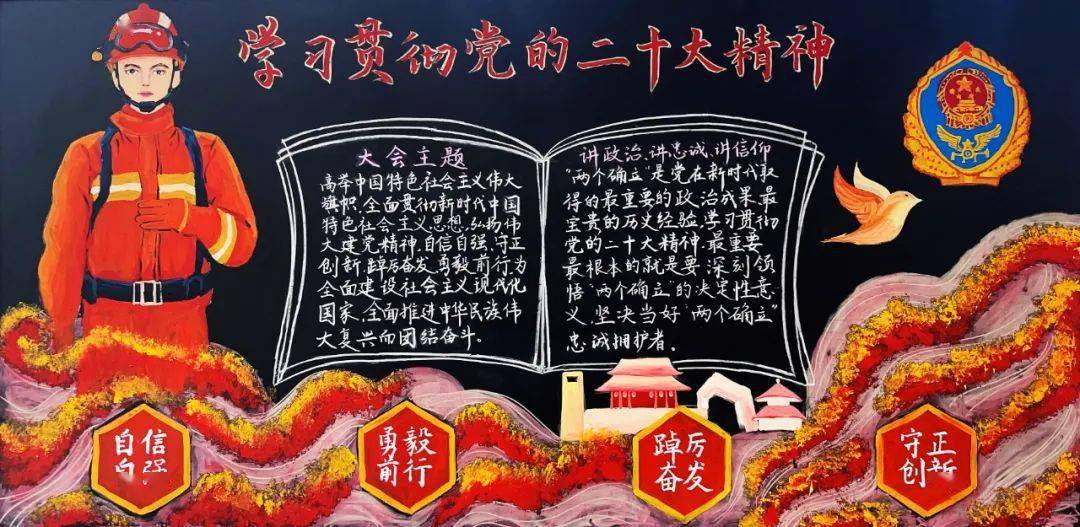 学习贯彻党的二十大精神
大会主题
高举中国特色社会主义伟大
旗帜、全面贯彻新时代中国
特色社会主义思想,弘扬伟
大建党精神,自信自强、守正
创新,踔厉奋发、勇毅前行为
全面建设社会主义现代化
国家、全面推进中华民族伟
大复兴而团结奋斗。
讲政治、讲忠诚、讲信仰
“两个确立”是党在新时代取
得的最重要的政治成果、最
宝贵的历史经验,学习贯彻
党的二十大精神,最重要
最根本的就是要深刻领
悟“两个确立”的决定性意
义、坚决当好“两个确立”
忠诚拥护者。
自信
自强
勇毅
前行
踔厉
奋发
守正
创新